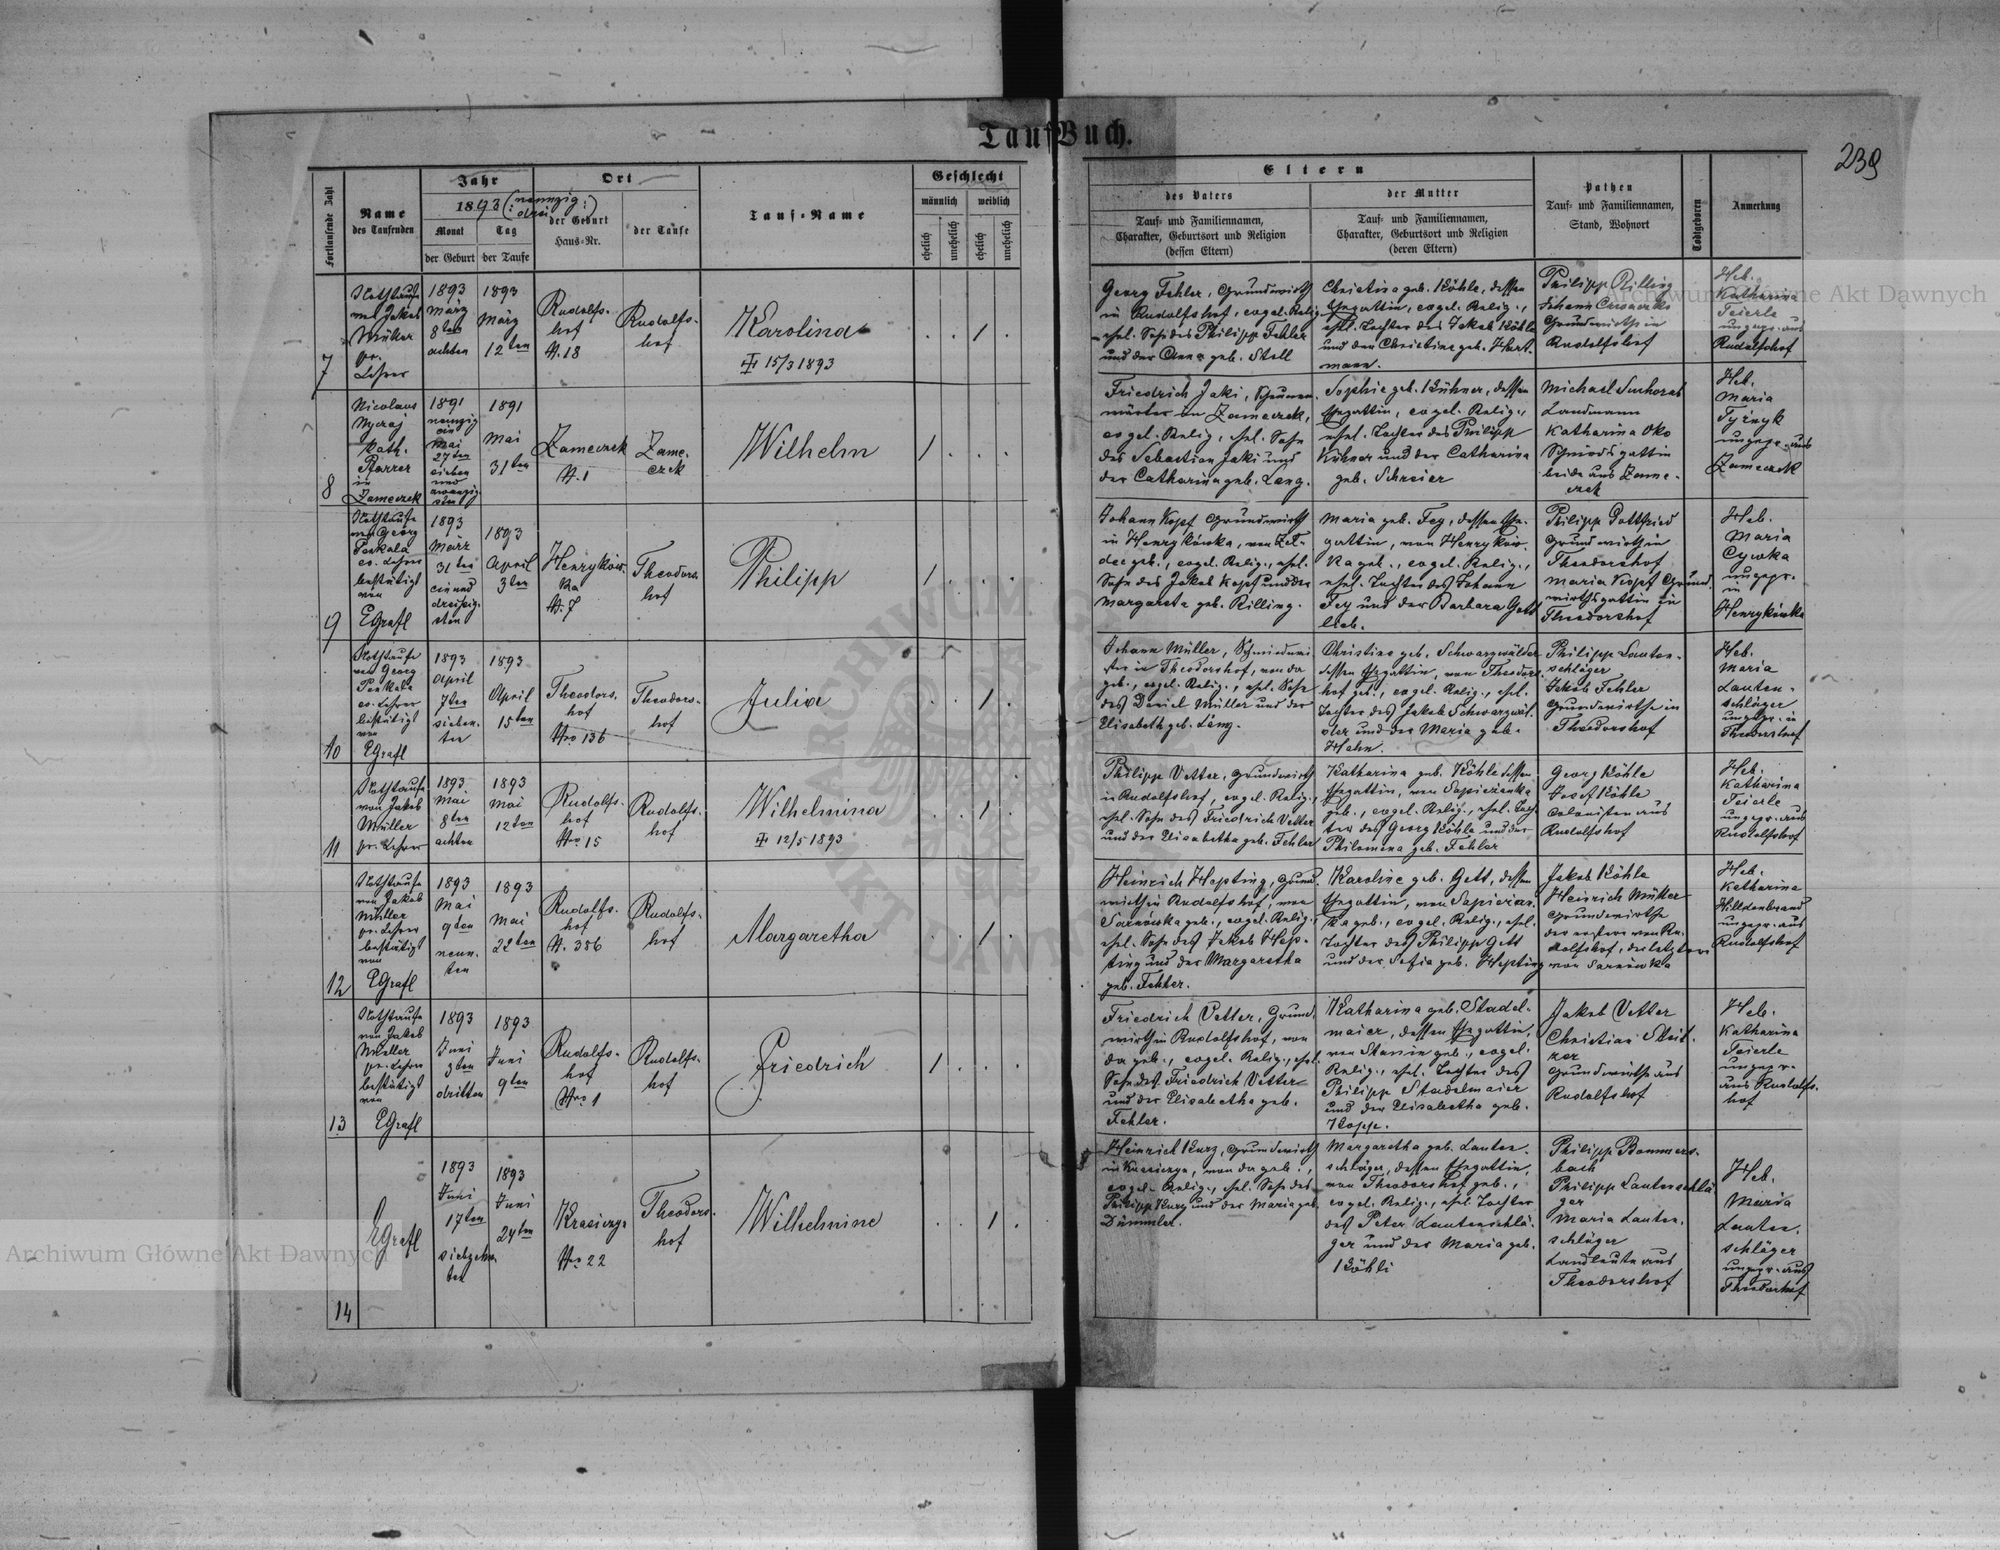 Tauf Buch.
239
Fortlaufende Zahl
Name
des Taufenden
Jahr
1893 (: neunzig
drei :)
Monat
Tag
der Geburt
der Taufe
Ort
der Geburt
Haus-Nr.
der Taufe
Tauf-Name
Geschlecht
männlich
weiblich
ehelich
unehelich
ehelich
unehelich
Eltern
des Vaters
Tauf- und Familiennamen,
Charakter, Geburtsort und Religion
(dessen Eltern)
der Mutter
Tauf- und Familiennamen,
Charakter, Geburtsort und Religion
(deren Eltern)
Pathen
Tauf- und Familiennamen,
Stand, Wohnort
Todtgeboren
Anmerkung
7
Nothtaufe
von Jakob
Müller
pr.
Lehrer
1893
März
8ten
achten
1893
März
12ten
Rudolfs-
hof
N. 18
Rudolfs-
hof
Karolina
15/3 1893
1
Georg Fehler, Grundwirth
in Rudolfshof, evgel. Relig.,
ehel. Sohn des Philipp Fehler
und der Anna geb. Stell
Christina geb. Köhle, dessen
Ehegattin, evgel. Relig.,
ehel. Tochter des Jakob Köhle
und der Christine geb. Hart-
mann.
Philipp Rilling
Grundwirthe in
Rudolfshof
Heb.
Katharina
Feierle
ungepr. aus
Rudolfshof
8
Nicolaus
Mycaj
kath.
Pfarrer
in
Zameczek
1891
neunzig
ein
Mai
27ten
sieben
und
zwanzig-
sten
1891
Mai
31ten
Zameczek
N. 1
Zame-
czek
Wilhelm
1
Friedrich Jaki,
wärter in Zameczek,
evgel. Relig., ehel. Sohn
des Sebastian Jaki und
der Catharina geb. Lang.
Sophie geb. Kühner, dessen
Ehegattin, evgel. Relig.,
ehel. Tochter des Philipp
Kühner und der Catharina
geb. Schreier
Michael Suchorab
Landmann
Katharina Oko
Schmiedsgattin
beide aus Zame-
czek
Heb.
Maria
Tyrzyk
ungepr. aus
Zameczek
9
Nothtaufe
von Georg
Peukala
ev. Lehrer
bestätigt
von
EGrafl
1893
März
31ten
ein und
dreißig-
sten
1893
April
3ten
Henryków-
ka
N. 7
Theodors-
hof
Philipp
1
Johann Kopf Grundwirth
in Henrykówka, von
geb., evgel. Relig., ehel.
Sohn des Jakob Kopf und der
Margareta geb. Rilling.
Maria geb. Fey, dessen Ehe-
gattin, von Henryków-
ka geb., evgel. Relig.,
ehel. Tochter des Johann
Fey und der Barbara Gott
lieb.
Philipp Gottfried
Grundwirth in
Theodorshof
Maria Kopf Grund-
wirthsgattin in
Theodorshof
Heb.
Maria
Cywka
ungepr.
in
Henrykówka
10
Nothtaufe
von Georg
Peukala
ev. Lehrer
bestätigt
von
EGrafl
1893
April
7ten
sieben-
ten
1893
April
15ten
Theodors-
hof
Nro 136
Theodors-
hof
Julia
1
Johann Müller, Schmiedmei-
ster in Theodorshof, von da
geb., evgel. Relig., ehel. Sohn
des Daniel Müller und der
Elisabeth geb. Lang.
Christine geb. Schwarzwälder
dessen Ehegattin, von Theodors-
hof geb., evgel. Relig., ehel.
Tochter des Jakob Schwarzwäl-
der und der Maria geb.
Hahn.
Philipp Lauten-
schläger
Jakob Fehler
Grundwirthe in
Theodorshof
Heb.
Maria
Lauten-
schläger
ungepr. in
Theodorshof
11
Nothtaufe
von Jakob
Müller
pr. Lehrer
1893
Mai
8ten
achten
1893
Mai
12ten
Rudolfs-
hof
Nro 15
Rudolfs-
hof
Wilhelmina
12/5 1893
1
Philipp Vetter, Grundwirth
in Rudolfshof, evgel. Relig.,
ehel. Sohn des Friedrich Vetter
und der Elisabetha geb. Fehler
Katharina geb. Köhle dessen
Ehegattin, von Sapiezanka
geb., evgel. Relig., ehel. Toch-
ter des Georg Köhle und der
Philomena geb. Fehler
Georg Köhle
Josef Köhle
Colonisten aus
Rudolfshof
Heb.
Katharina
Feierle
ungepr. aus
Rudolfshof
12
Nothtaufe
von Jakob
Müller
pr. Lehrer
bestätigt
von
EGrafl
1893
Mai
9ten
neun-
ten
1893
Mai
22ten
Rudolfs-
hof
N. 356
Rudolfs-
hof
Margaretha
1
Heinrich Hepting, Grund-
wirth in Rudolfshof, von
Sarnówka geb., evgel. Relig.,
ehel. Sohn des Jakob Hep-
ting und der Margaretha
geb. Fehler.
Karoline geb. Gett, dessen
Ehegattin, von Sapiezan-
ka geb., evgel. Relig., ehel.
Tochter des Philipp Gett
und der Sofia geb. Hepting
Jakob Köhle
Heinrich Müller
Grundwirthe
der erstere von Ru-
dolfshof, der letztere
von Sarnówka
Heb.
Katharina
Hilldenbrand
ungepr. aus
Rudolfshof
13
Nothtaufe
von Jakob
Müller
pr. Lehrer
bestätigt
von
EGrafl
1893
Juni
3ten
dritten
1893
Juni
9ten
Rudolfs-
hof
Nro 1
Rudolfs-
hof
Friedrich
1
Friedrich Vetter, Grund-
wirth in Rudolfshof, von
da geb., evgel. Relig., ehel.
Sohn des Friedrich Vetter
und der Elisabetha geb.
Fehler.
Katharina geb. Stadel-
maier, dessen Ehegattin,
von Stanin geb., evgel.
Relig., ehel. Tochter des
Philipp Stadelmaier
und der Elisabetha geb.
Kopp.
Jakob Vetter
Christian
Grundwirthe aus
Rudolfshof
Heb.
Katharina
Feierle
ungepr.
aus Rudolfs-
hof
14
EGrafl
1893
Juni
17ten
siebzehn-
ten
1893
Juni
24ten
Krasiczyn
Nro 22
Theodors-
hof
Wilhelmine
1
Heinrich Kurz, Grundwirth
in Krasiczyn, von da geb.,
evgel. Relig., ehel. Sohn des
Philipp Kurz und der Maria geb.
Dümmler.
Margaretha geb. Lauten-
schläger, dessen Ehegattin,
von Theodorshof geb.,
evgel. Relig., ehel. Tochter
des Peter Lautenschlä-
ger und der Maria geb.
Köhli
Philipp Bommers-
bach
Philipp Lautenschlä-
ger
Maria Lauten-
schläger
Landleute aus
Theodorshof
Heb.
Maria
Lauten-
schläger
ungepr. aus
Theodorshof
Archiwum Główne Akt Dawnych
Archiwum Główne Akt Dawnych
ARCHIWUM
AKT DAWNYCH